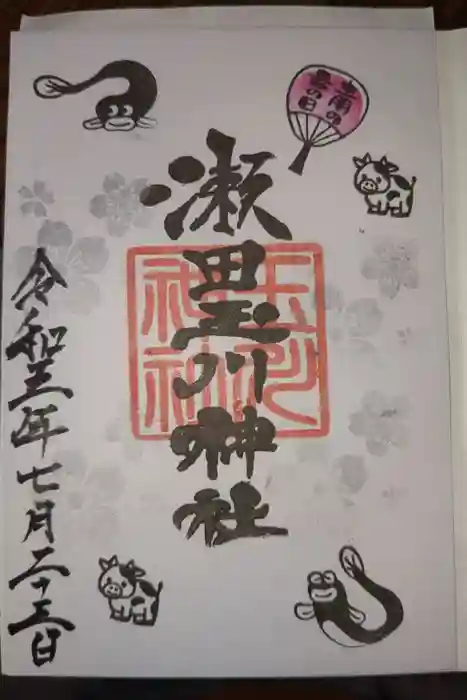 土用の
丑の日
瀬田玉川神社
令和三年七月二十三日